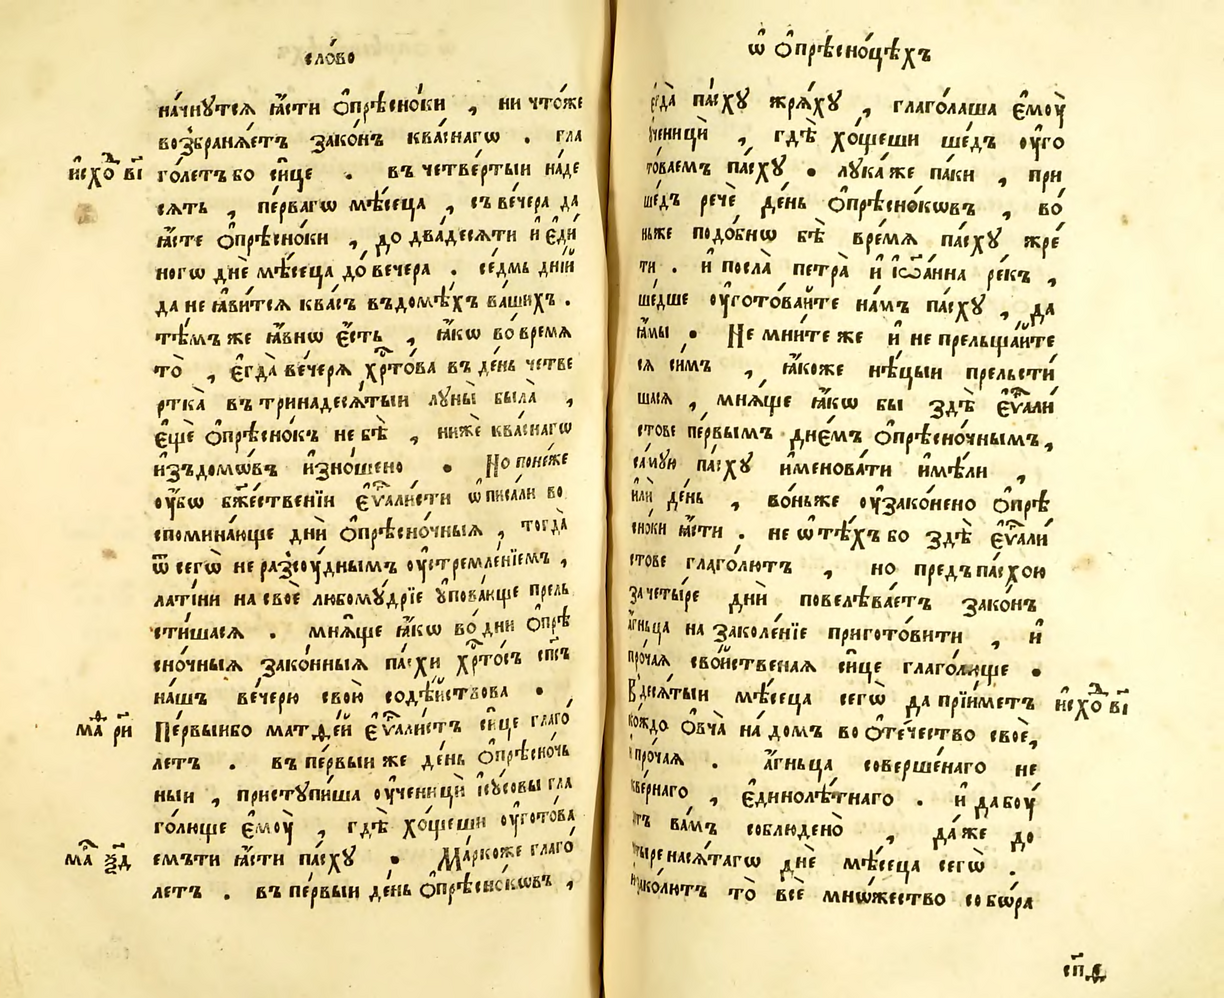 сло́во
на́чнутсѧ ꙗ҆́сти ѻ҆прѣсно́ки , ни что́же
возбранѧ́етъ зако́нъ ква́снагѡ . гла
и҆схо́д в҃і
го́летъ бо си́це . въ четве́ртыи на́де
сѧть , пе́рвагѡ мѣ́сеца , съ ве́чера да
ꙗ҆́сте ѻ҆прѣсно́ки , до два́десѧти и҆ є҆ди́
ногѡ днѐ мѣ́сеца до́ вечера . се́дмь дні́й
да не ꙗ҆ви́тсѧ ква́съ въ домѣ́хъ ва́шихъ .
тѣ́мъ же ꙗ҆́внѡ є҆́сть , ꙗ҆́кѡ во вре́мѧ
то̀ , є҆гда̀ ве́черѧ хр҇то́ва въ де́нь четве
ртка̀ въ тринадесѧ́тыи луны̀ была̀ ,
є҆щѐ ѻ҆прѣсно́къ не бѣ̀ , ни́же ква́снагѡ
и҆з̾ домѡ́въ и҆зно́шено . Но поне́же
ᲂу҆́бѡ бж҃е́ственїи є҆ѵⷢ҇али́сти ѡ҆писа́ли во
спомина́юще днѝ ѻ҆прѣсно́чныѧ , тогда̀
ѿ сегѡ̀ не разсꙋ́днымъ ᲂу҆стремле́нїемъ ,
лати́ни на своѐ любому́дрїе ᲂу҆пова́юще прель
сти́шасѧ . мнѧ́ще ꙗ҆́кѡ во дни ѻ҆прѣ
сно́чныѧ зако́нныѧ па́схи хр҇то́съ сп҃съ
на́шъ ве́черю свою̀ содѣ́йствова .
мѳ҃ р҃і
Пе́рвыи бо матѳе́й є҆ѵⷢ҇али́стъ си́це глаго́
летъ . въ пе́рвыи же де́нь ѻ҆прѣсно́чь
ныи , приступи́ша ᲂу҆ченицы̀ і҆су́совы гла
го́люще є҆мꙋ̀ , гдѣ̀ хо́щеши ᲂу҆гото́ва
ма҃ ѯ҃д
емъ ти ꙗ҆́сти па́сху . Ма́рко же глаго́
летъ . въ пе́рвыи де́нь ѻ҆прѣсно́кѡвъ ,
ѡ҆ ѻ҆прѣсно́цѣхъ
є҆гда̀ па́сху жрѧ́ху , глаго́лаша є҆мꙋ̀
ᲂу҆ченицы̀ , гдѣ̀ хо́щеши ше́дъ ᲂу҆го
то́ваемъ па́сху . лука́ же па́ки , при
ше́дъ речѐ де́нь ѻ҆прѣсно́кѡвъ , во́
ньже подо́бнѡ бѣ̀ вре́мѧ па́сху жре́
ти . и҆ посла̀ петра̀ и҆ і҆ѡа́нна ре́къ ,
ше́дше ᲂу҆гото́вайте на́мъ па́сху , да
ꙗ҆́мы . Не мни́те же и҆ не прельща́йте
сѧ си́мъ , ꙗ҆́коже нѣ́цыи прельсти́
шасѧ , мнѧ́ще ꙗ҆́кѡ бы здѣ̀ є҆ѵⷢ҇али́
стове пе́рвымъ дне́мъ ѻ҆прѣсно́чнымъ,
са́мую па́сху и҆менова́ти и҆мѣ́ли ,
и҆лѝ де́нь , во́ньже ᲂу҆зако́нено ѻ҆прѣ
сно́ки ꙗ҆́сти . не ѡ҆ тѣ́хъ бо здѣ̀ є҆ѵⷢ҇али́
стове глаго́лютъ , но предъ па́схою
за четы́ре днѝ повелѣва́етъ зако́нъ
а҆́гньца на заколе́нїе пригото́вити , и҆
про́чаѧ сво́йственаѧ си́це глаго́люще .
В десѧ́тыи мѣ́сеца сегѡ̀ да прїи́метъ
и҆схо́д в҃і
ко́ждо ѻ҆вча̀ на́ домъ во ѻ҆те́чество своѐ,
и҆ про́чаѧ . а҆́гньца соверше́наго не
скве́рнаго , є҆динолѣ́тнаго . и҆ да бꙋ́
детъ ва́мъ соблюдено̀ , да́же до
четы́ренасѧ́тагѡ днѐ мѣ́сеца сегѡ̀ .
и҆ зако́литъ то̀ всѐ мнѡ́жество собѡ́ра
сп҃ѕ